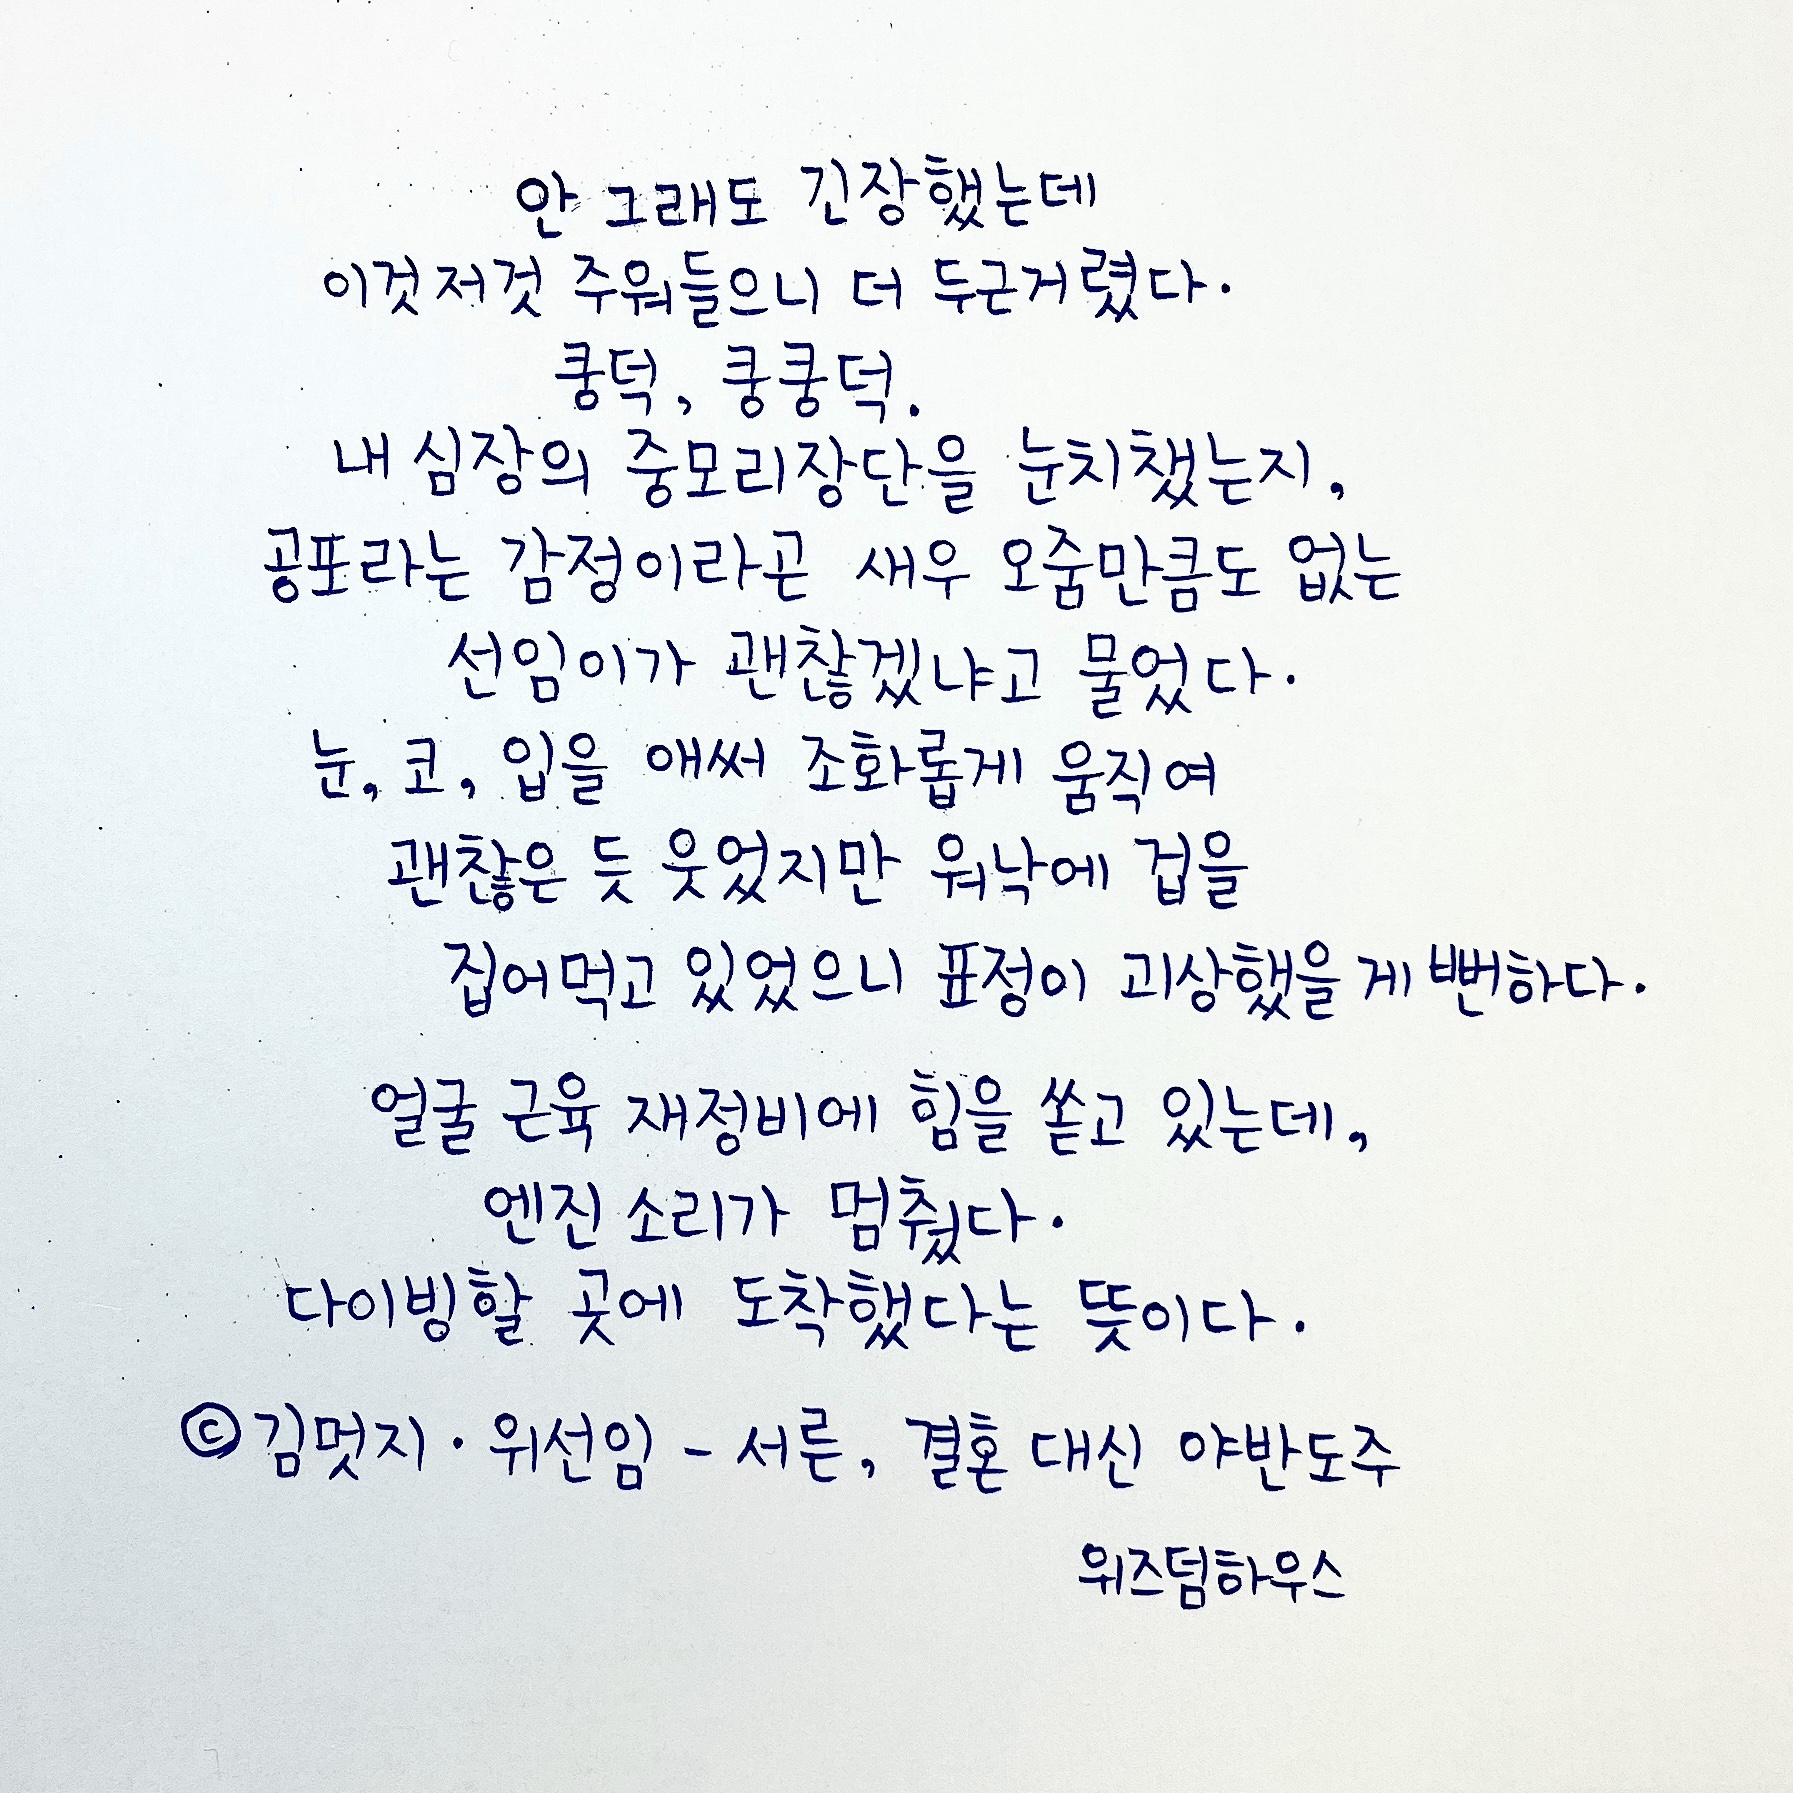 안 그래도 긴장했는데
이것저것 주워들으니 더 두근거렸다.
쿵덕, 쿵쿵덕.
내 심장의 중모리장단을 눈치챘는지,
공포라는 감정이라곤 새우 오줌만큼도 없는
선임이가 괜찮겠냐고 물었다.
눈, 코, 입을 애써 조화롭게 움직여
괜찮은 듯 웃었지만 워낙에 겁을
집어먹고 있었으니 표정이 괴상했을 게 뻔하다.
얼굴 근육 재정비에 힘을 쏟고 있는데,
엔진 소리가 멈췄다.
다이빙할 곳에 도착했다는 뜻이다.
©김멋지·위선임 - 서른, 결혼 대신 야반도주
위즈덤하우스